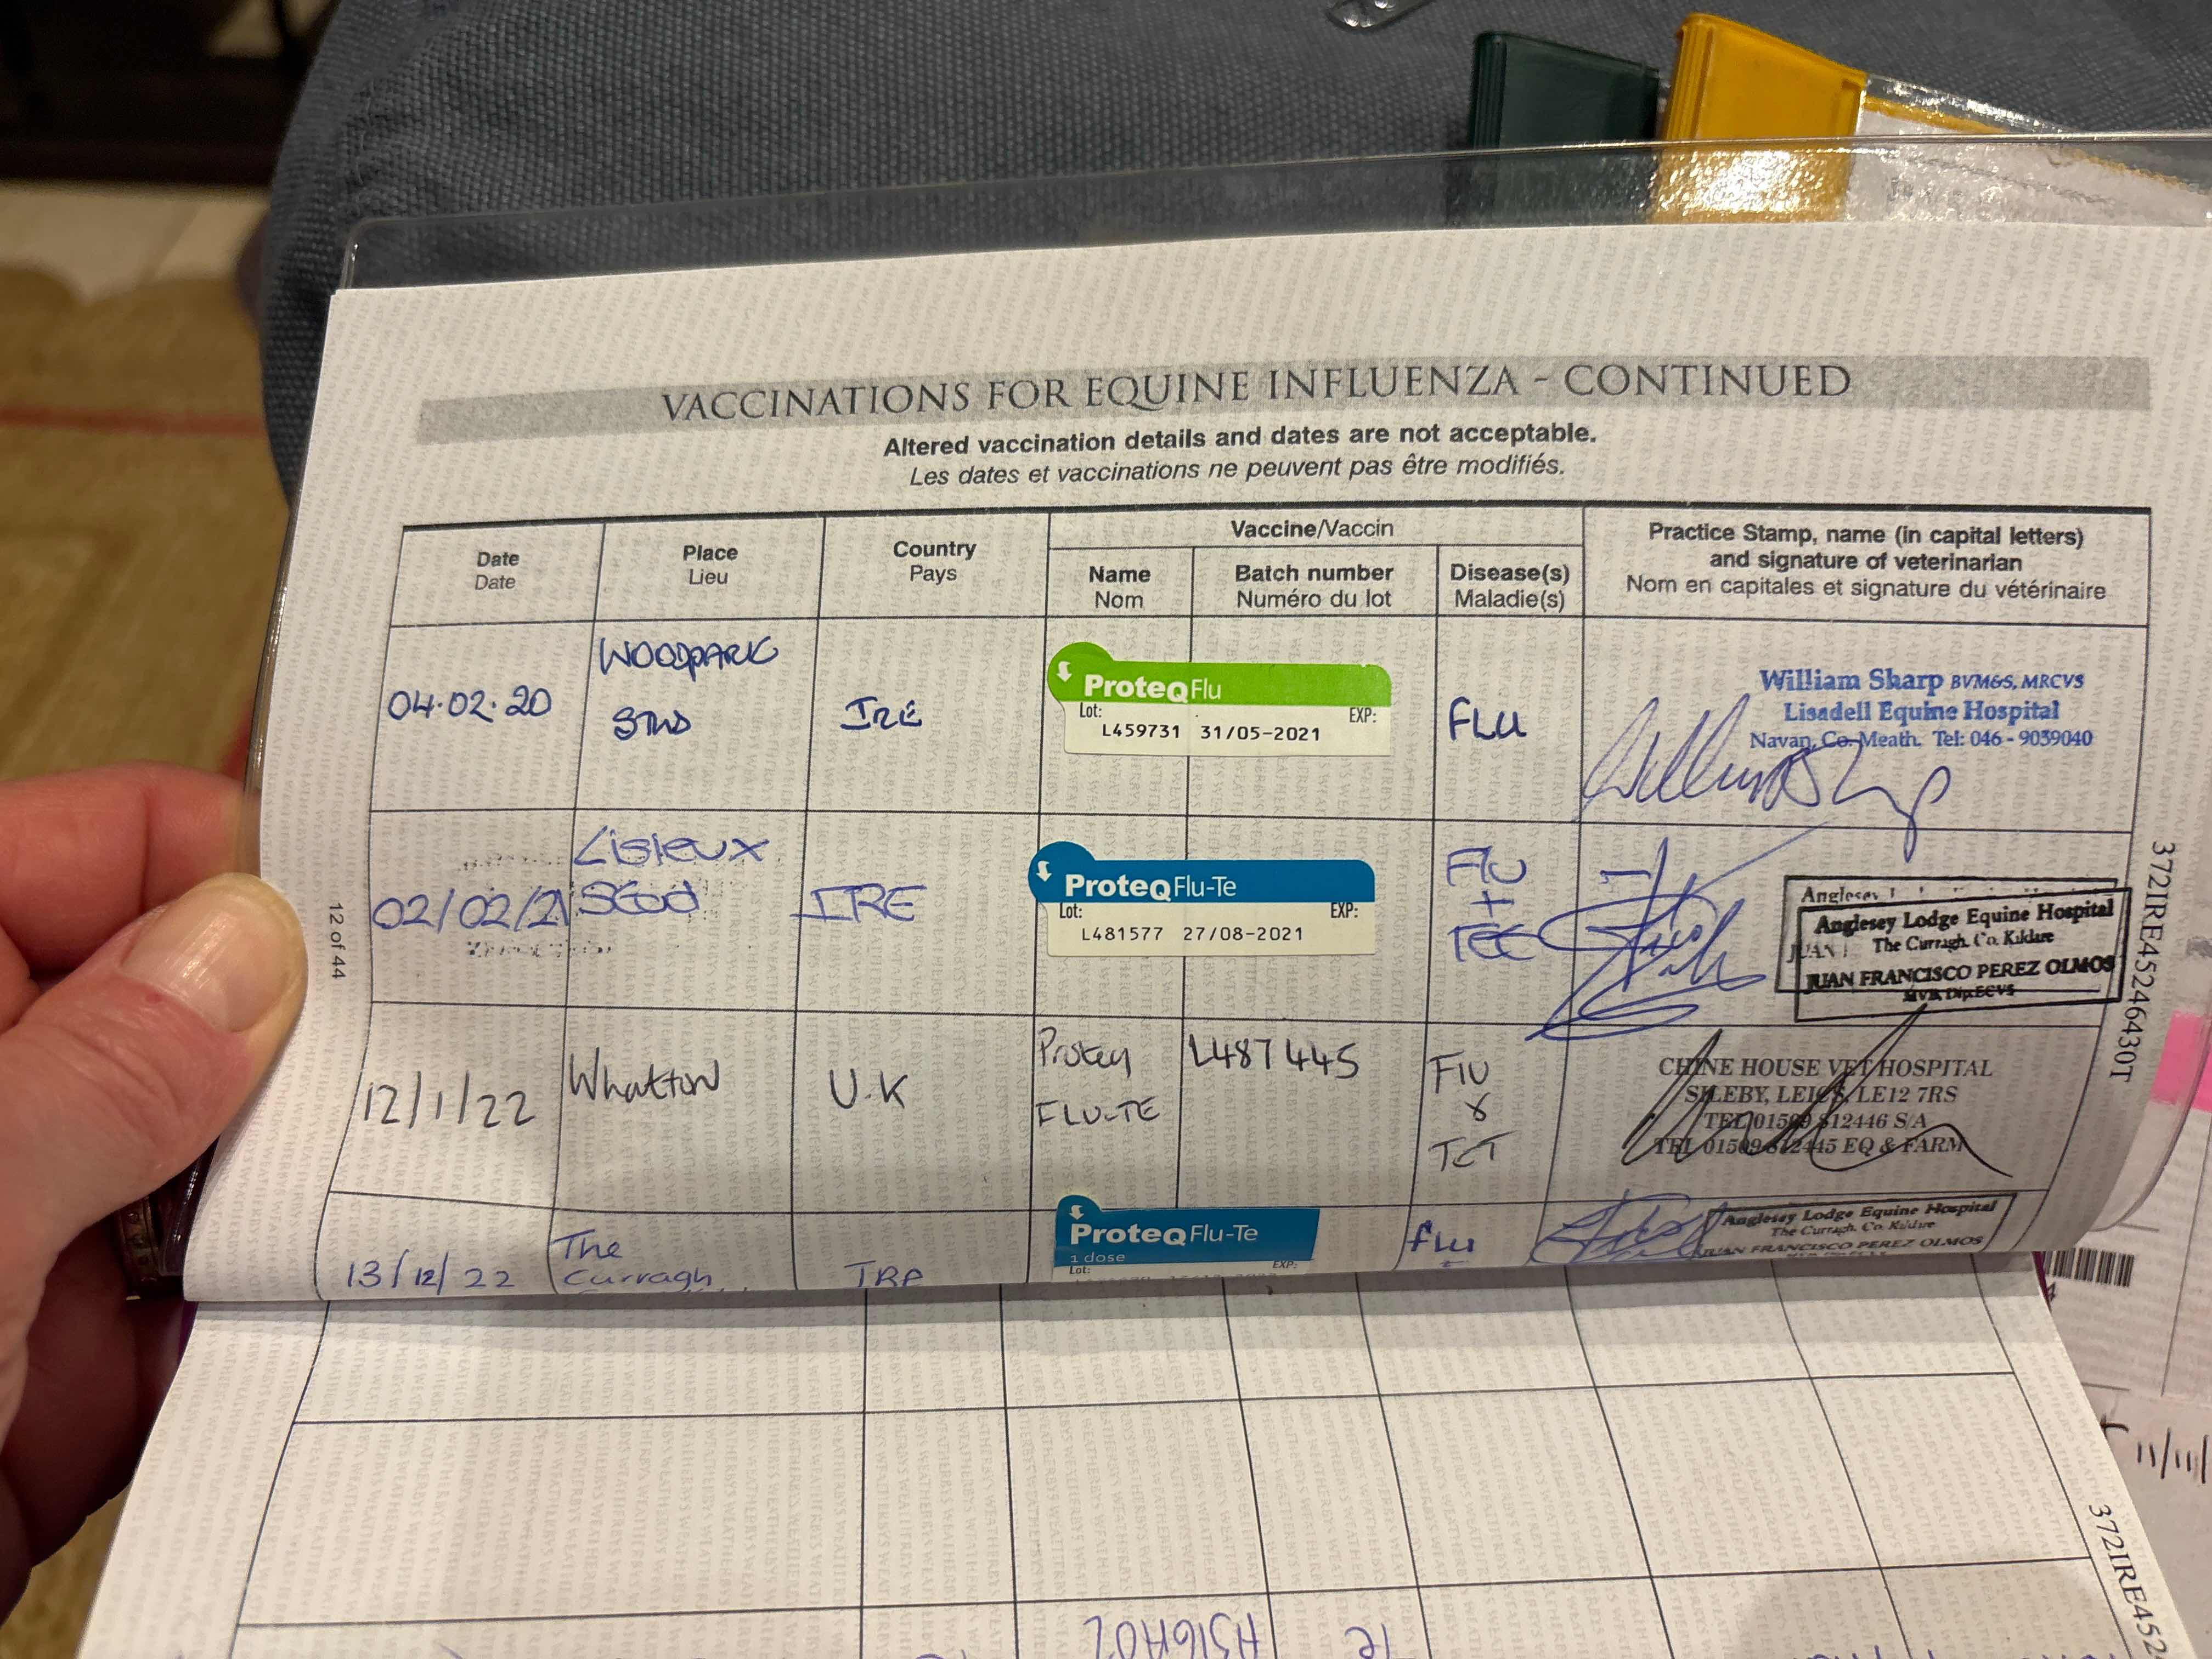 VACCINATIONS FOR EQUINE INFLUENZA - CONTINUED
Altered vaccination details and dates are not acceptable.
Les dates et vaccinations ne peuvent pas être modifiés.
Date
Date
Place
Lieu
Country
Pays
Vaccine/Vaccin
Name
Nom
Batch number
Numéro du lot
Disease(s)
Maladie(s)
Practice Stamp, name (in capital letters)
and signature of veterinarian
Nom en capitales et signature du vétérinaire
04.02.20
WOODPARK
STUD
IRE
ProteqFlu
Lot: EXP:
L459731 31/05-2021
FLU
William Sharp BVM&S, MRCVS
Lisadell Equine Hospital
Navan, Co. Meath. Tel: 046 - 9059040
02/02/21
Lisieux
Stud
IRE
ProteqFlu-Te
Lot: EXP:
L481577 27/08-2021
FLU
+
TET
Anglesey Lodge Equine Hospital
The Curragh, Co. Kildare
JUAN FRANCISCO PEREZ OLMOS
12/1/22
Whatton
U.K
Proteq
FLU-TE
L487445
FLU
&
TET
CHINE HOUSE VET HOSPITAL
SILEBY, LEICS, LE12 7RS
TEL 01509 812446 S/A
TEL 01509 812445 EQ & FARM
13/12/22
The
Curragh
IRE
ProteqFlu-Te
1 dose
Lot: EXP:
flu
Anglesey Lodge Equine Hospital
The Curragh, Co. Kildare
JUAN FRANCISCO PEREZ OLMOS
12 of 44
372IRE452464630T
372IRE452
A516A02
Te
11/11